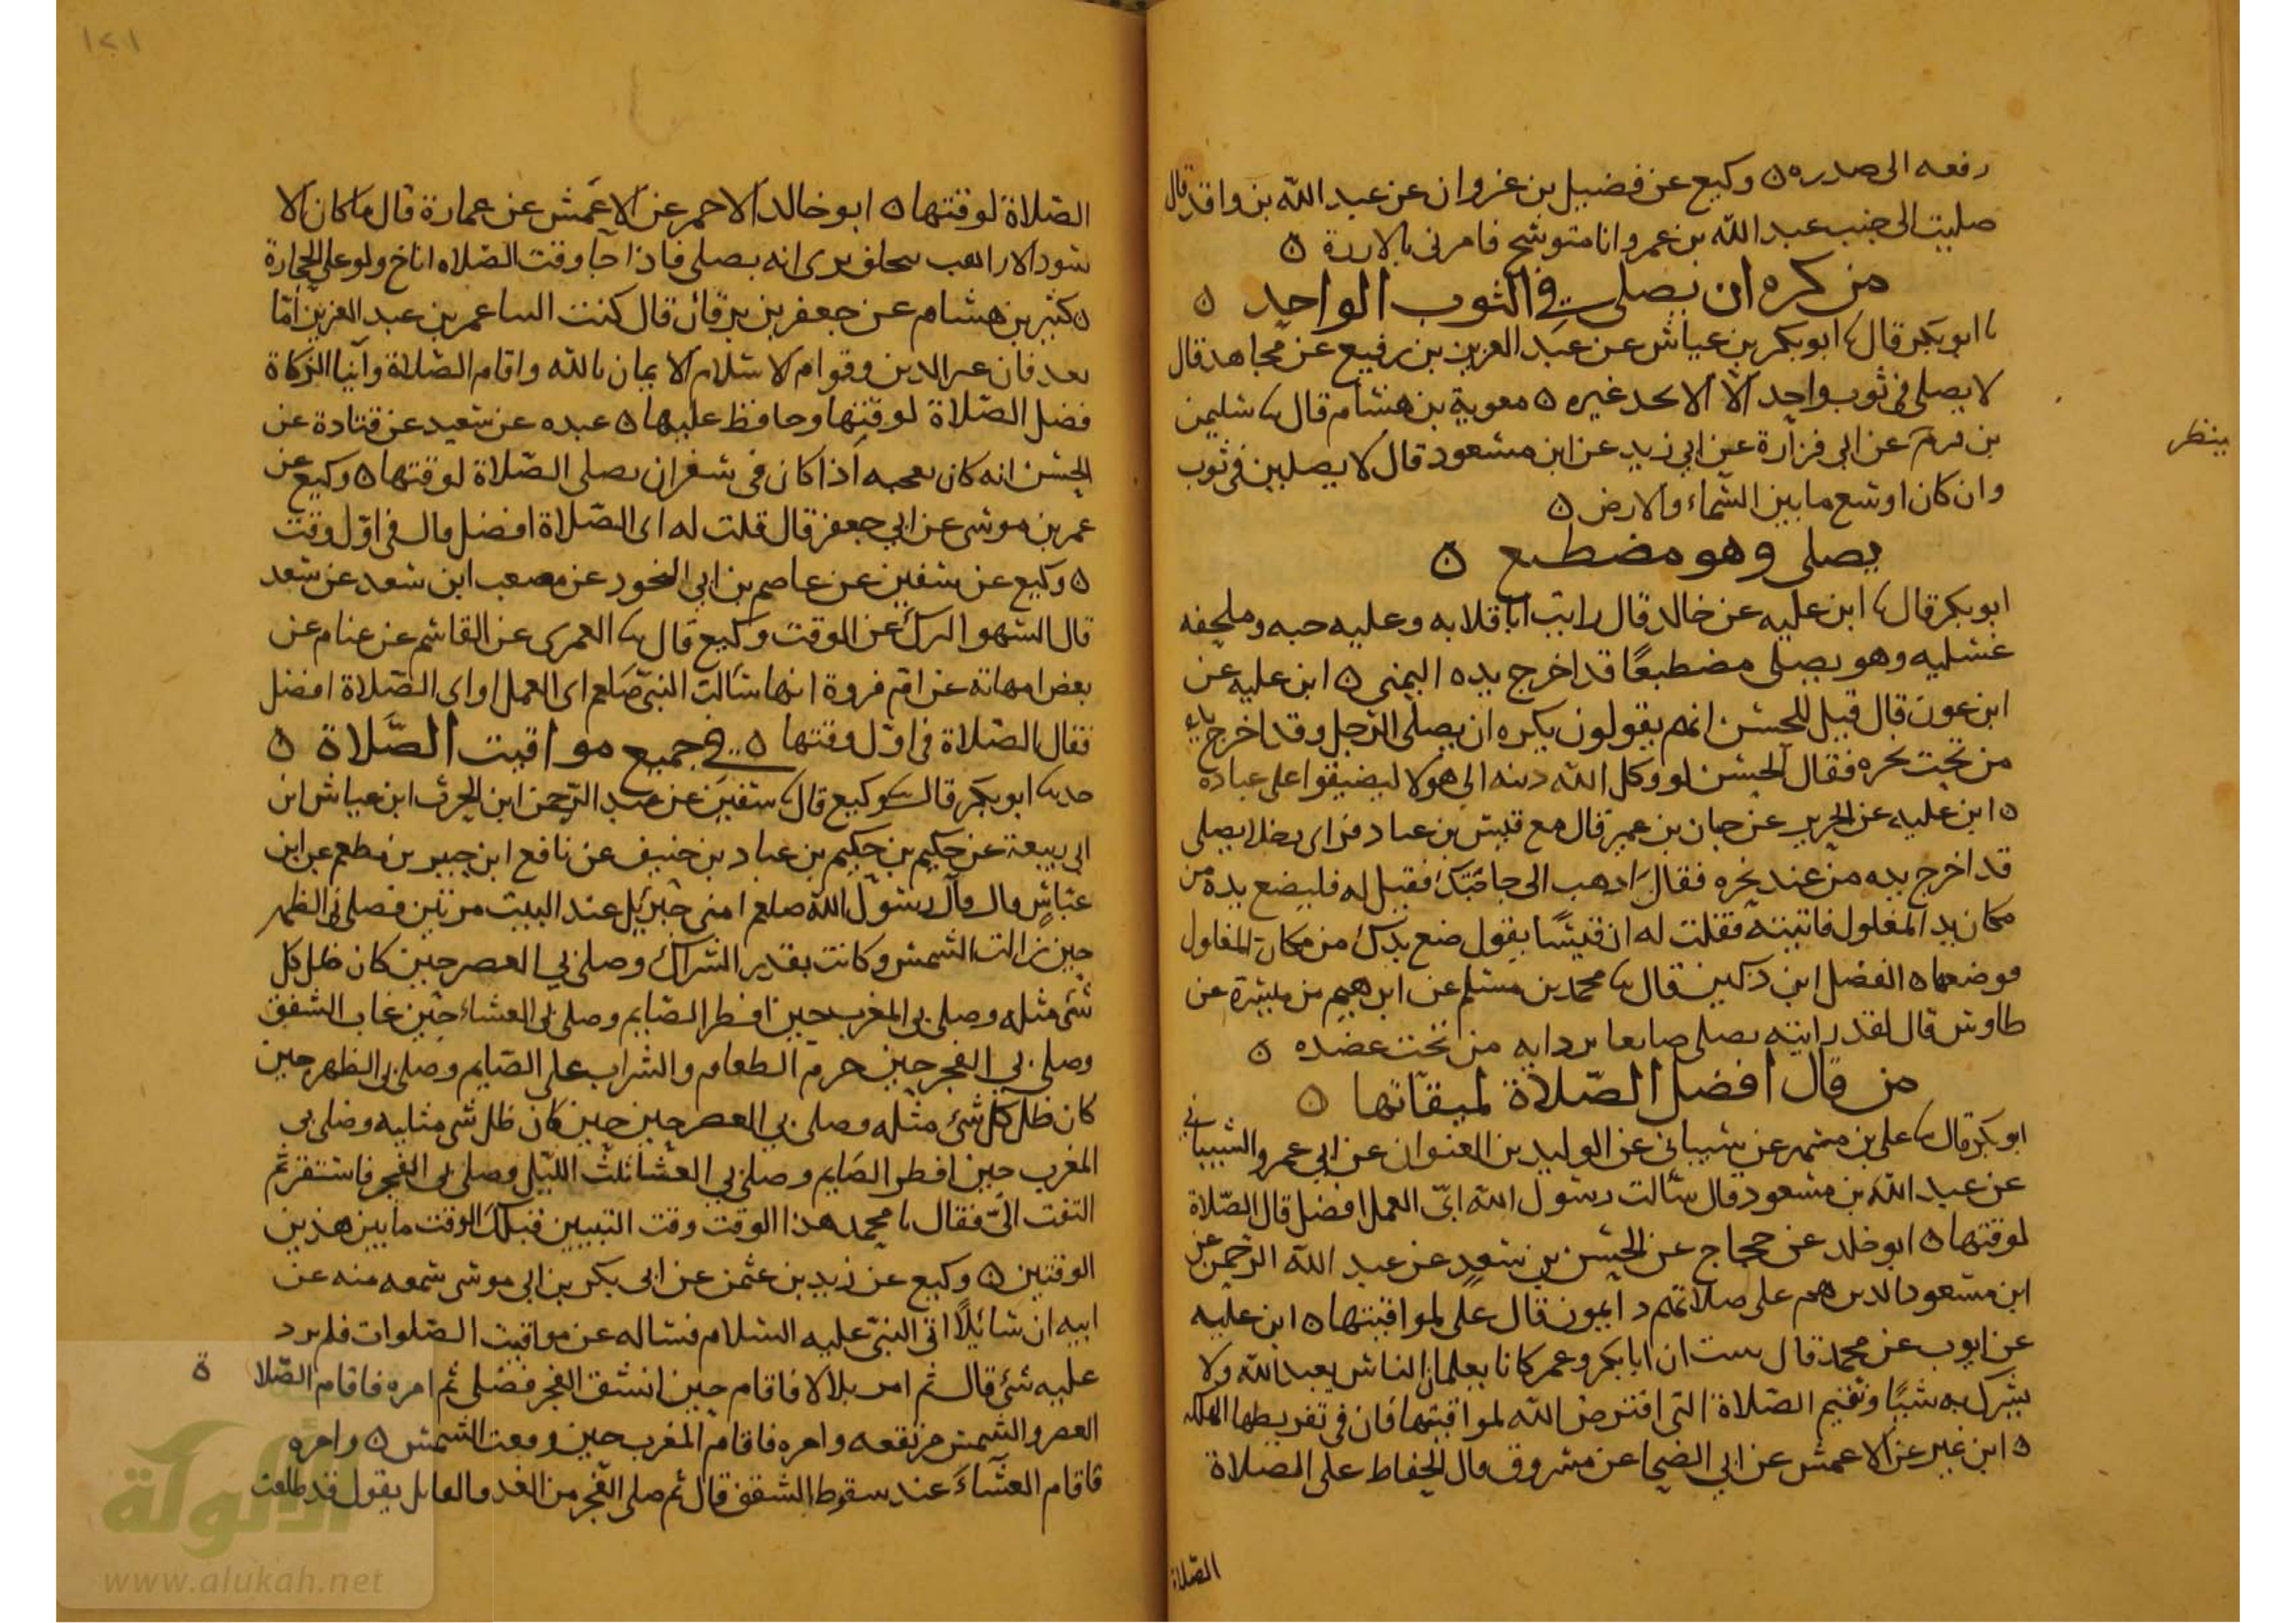 رفعه الى صدره ٥ وكيع عن فضيل بن غزوان عن عبد الله بن واقد قال
صليت الى جنب عبد الله بن عمر وانا متوشح فامرنى بالازرة ٥
من كره ان يصلى فى الثوب الواحد ٥
ابو بكر قال ابو بكر بن عياش عن عبد العزيز بن رفيع عن مجاهد قال
لا يصلى فى ثوب واحد الا الا يجد غيره ٥ معوية بن هشام قال سليمن
بن قرم عن ابى فزارة عن ابى زيد عن ابن مسعود قال لا يصلين فى ثوب
ينظر
وان كان اوسع ما بين السماء والارض ٥
يصلى وهو مضطبع ٥
ابو بكر قال ابن عليه عن خالد قال رايت ابا قلابه وعليه جبه وملحفه
غسليه وهو يصلى مضطبعًا قد اخرج يده اليمنى ٥ ابن عليه عن
ابن عون قال قيل للحسن انهم يقولون يكره ان يصلى الرجل وقد اخرج يده
من تحت نحره فقال الحسن لو وكل الله دينه الى هولا ليضيقوا على عباده
٥ ابن عليه عن الجريرى عن حيان بن عمير قال مع قيس بن عباد فراى رجلا يصلى
قد اخرج يده من عند نحره فقال اذهب الى صاحبك فقيل له فليضع يده من
مكان يد المغلول فاتيته فقلت له ان قيسًا يقول ضع يدك من مكان المغلول
فوضعها ٥ الفضل ابن دكين قال محمد بن مسلم عن ابرهيم بن ميسرة عن
طاوس قال لقد رايته يصلى بردايه من تحت عضده ٥
من قال افضل الصلاة لميقاتها ٥
ابو بكر قال على بن مسهر عن شيبانى عن الوليد بن العنوان عن ابى عمرو الشيبانى
عن عبد الله بن مسعود قال سالت رسول الله اى العمل افضل قال الصلاة
لوقتها ٥ ابو خلد عن حجاج عن الحسن بن سعد عن عبد الله الرحمن عن
ابن مسعود الدين هم على صلاتهم دايمون قال على لمواقيتها ٥ ابن عليه
عن ايوب عن محمد قال ان ابا بكر وعمر كانا يعلمان الناس يعبد الله ولا
يشرك به شيًا وتقيم الصلاة التى افترض الله لمواقيتها فان فى تفريطها الهلكه
٥ ابن نمير عن الاعمش عن ابى الضحا عن مسروق قال الحفاظ على الصلاة
الصلاة
الصلاة لوقتها ٥ ابو خالد الاحمر عن الاعمش عن عمارة قال ما كان الا
سود الا راهب يرى انه يصلى فاذا جا وقت الصلاه اناخ ولو على الحجارة
٥ كثير بن هشام عن جعفر بن برقان قال كتب الينا عمر بن عبد العزيز امّا
بعد فان عز الدين وقوام الاسلام الايمان بالله واقام الصلاة وايتا الزكاة
فصل الصلاة لوقتها وحافظ عليها ٥ عبده عن سعيد عن قتادة عن
الحسن انه كان يعجبه اذا كان فى سفر ان يصلى الصلاة لوقتها ٥ وكيع عن
عمر بن موسى عن ابى جعفر قال قلت له اى الصلاة افضل قال فى اول وقت
٥ وكيع عن سفين عن عاصم بن ابى النجود عن مصعب ابن سعد عن سعد
قال السهو الترك عن الوقت وكيع قال العمرى عن القاسم عن غنام عن
بعض امهاته عن ام فروة انها سالت النبى صلعم اى العمل او اى الصلاة افضل
فقال الصلاة فى اول وقتها ٥ فى جميع مواقيت الصلاة ٥
ابو بكر قال وكيع قال سفين عن عبد الرحمن ابن الحرث ابن عياش ابن
ابى ربيعة عن حكيم بن حكيم بن عباد بن حنيف عن نافع ابن جبير بن مطعم عن ابن
عباس قال قال رسول الله صلعم امنى جبريل عند البيت مرتين فصلى بى الظهر
حين زالت الشمس وكانت بقدر الشراك وصلى بى العصر حين كان ظل كل
شى مثله وصلى بى المغرب حين افطر الصايم وصلى بى العشاء حين غاب الشفق
وصلى بى الفجر حين حرم الطعام والشراب على الصايم وصلى بى الظهر حين
كان ظل كل شى مثله وصلى بى العصر حين حين كان ظل شى مثليه وصلى بى
المغرب حين افطر الصايم وصلى بى العشا ثلث الليل وصلى بى الفجر فاسفر ثم
التفت الىّ فقال يا محمد هذا الوقت وقت النبيين قبلك الوقت ما بين هذين
الوقتين ٥ وكيع عن زيد بن عثمن عن ابى بكر بن ابى موسى سمعه منه عن
ابيه ان سائلًا اتى النبى عليه السلام فساله عن مواقيت الصلوات فلم يرد
عليه شئ قال ثم امر بلالا فاقام حين انشق الفجر فصلى ثم امره فاقام الصلا ة
العصر والشمس مرتفعه وامره فاقام المغرب حين وقعت الشمس ٥ وامره
فاقام العشاء عند سقوط الشفق قال ثم صلى الفجر من الغد والقايل يقول قد طلعت
الألوكة
www.alukah.net